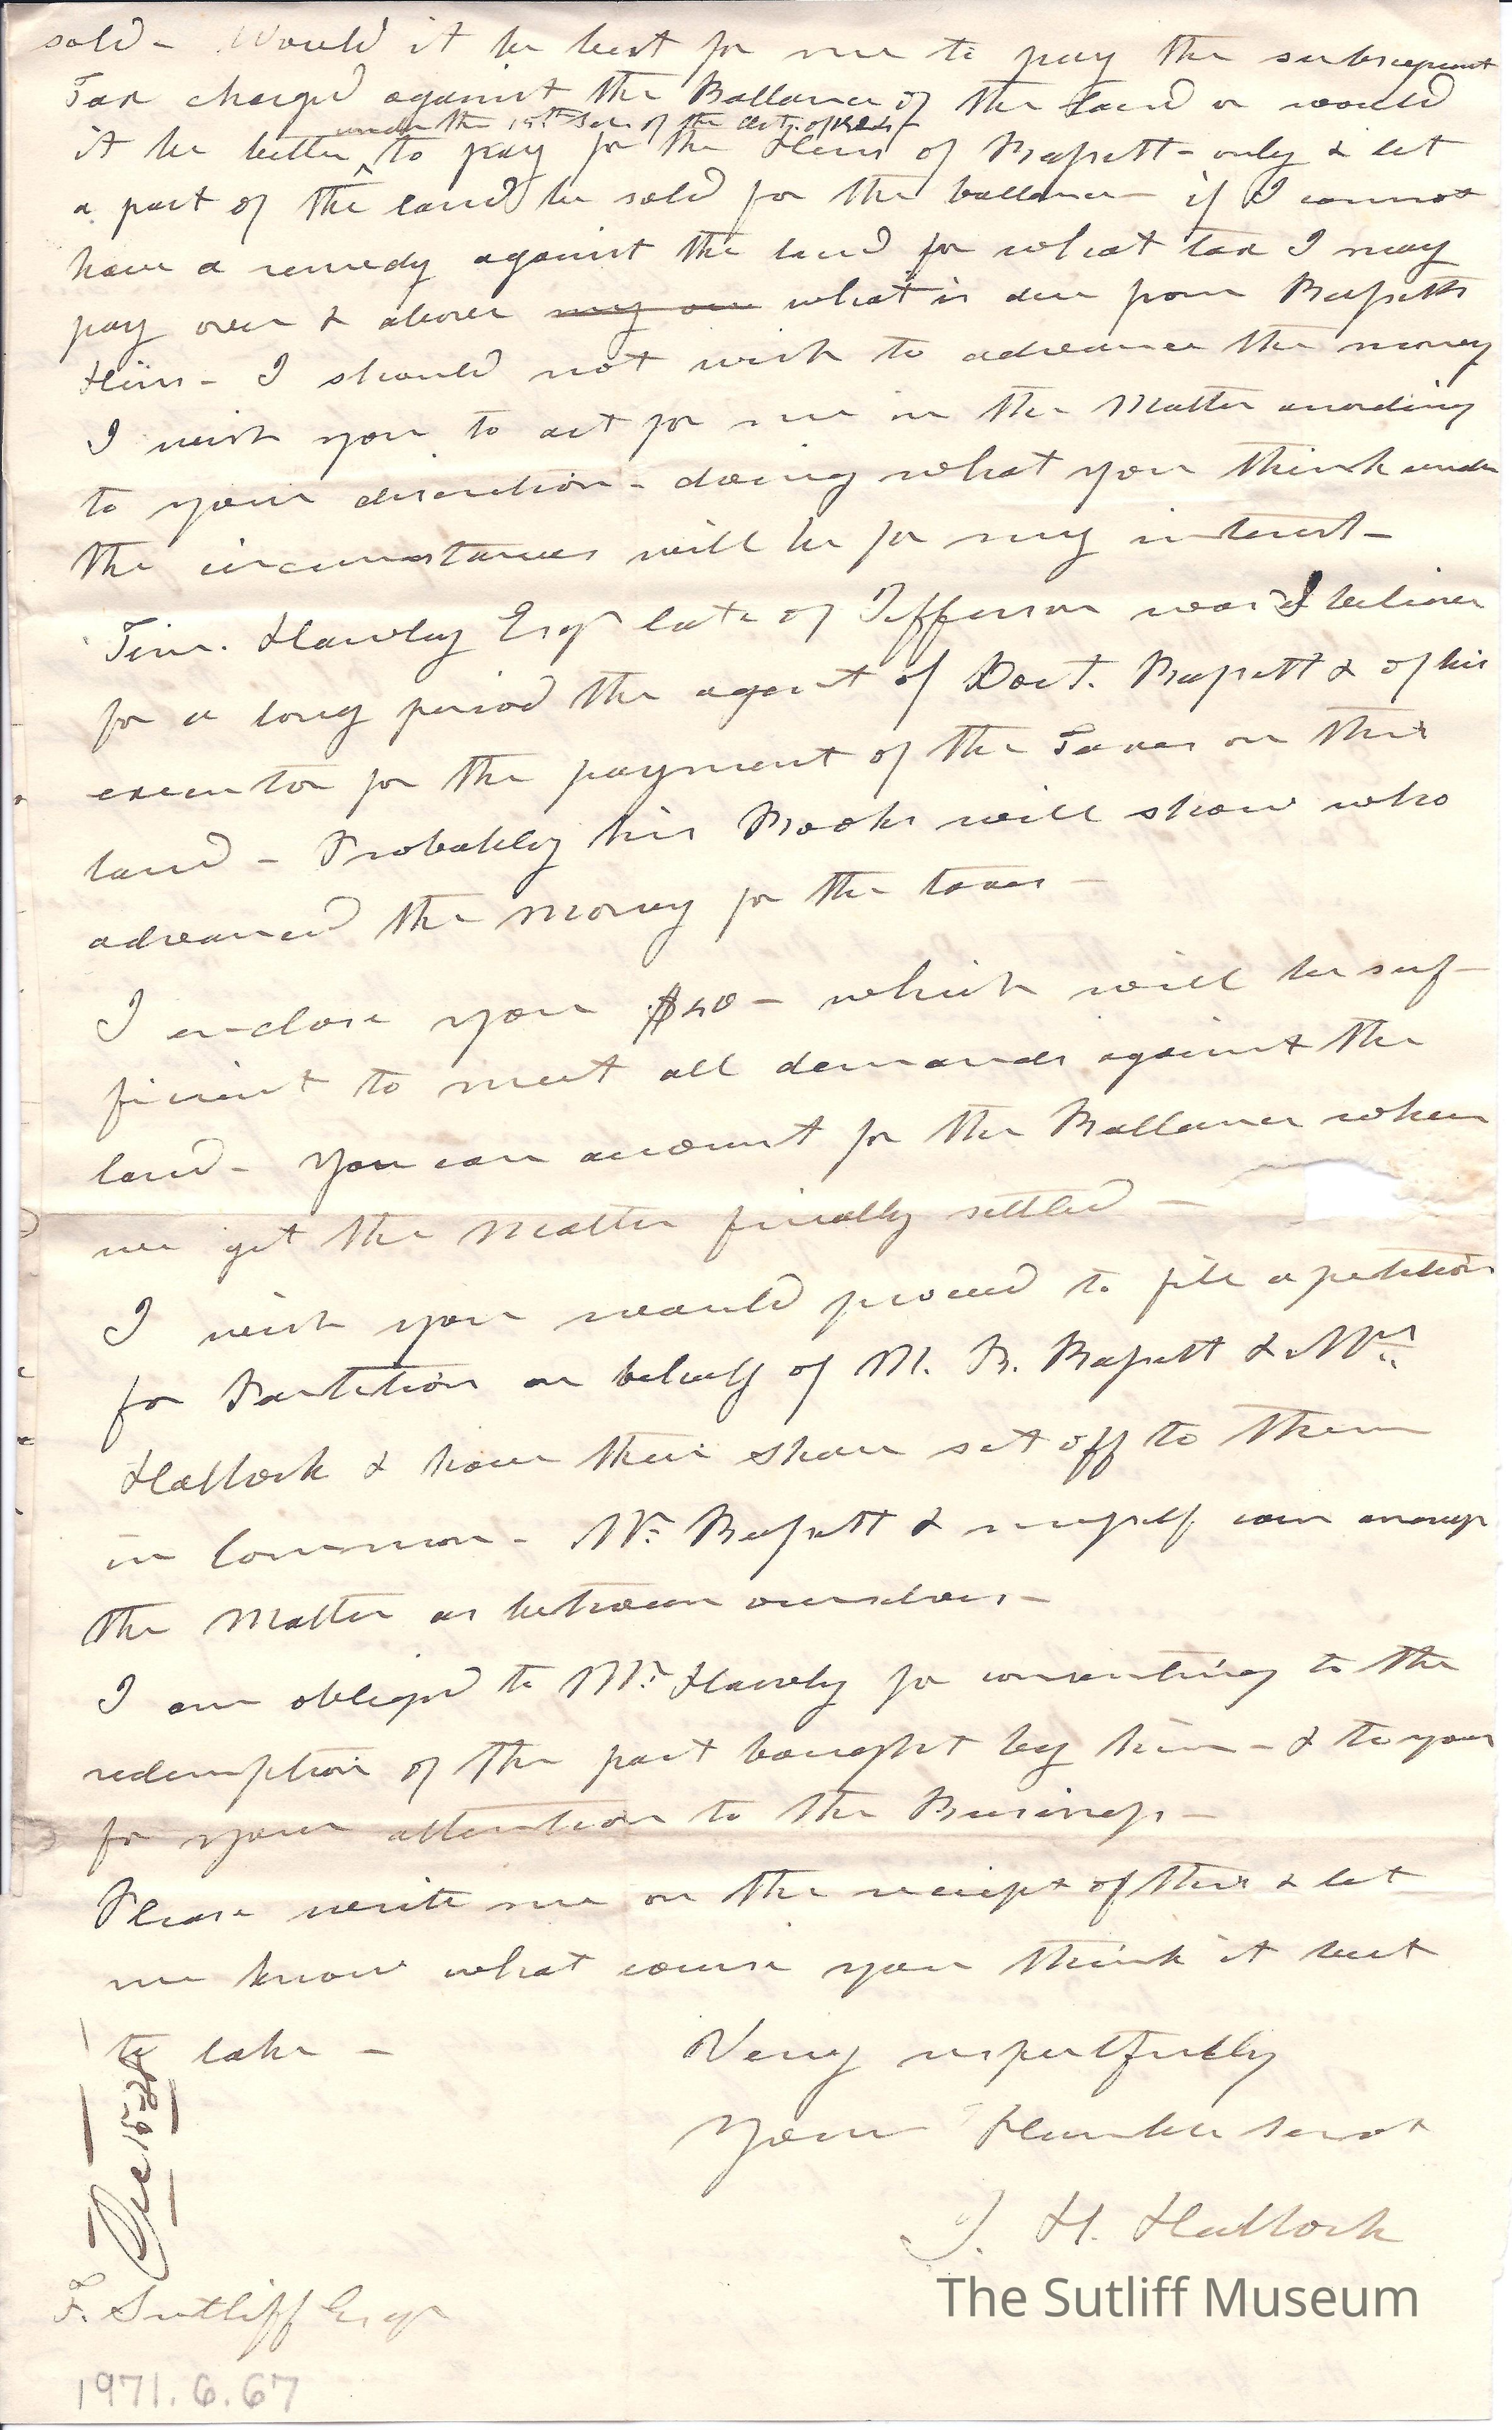 sold - Would it be best for me to pay the subsequent
Tax charged against the Ballance of the land or would
under the 15th Sec. of the Act of
it be better to pay for the Heirs of Bassett - only & let
a part of the land be sold for the ballance - if I cannot
have a remedy against the land for what tax I may
pay over & above my own what is due from Bassetts
Heirs - I should not wish to advance the money
I wish you to act for me in the Matter according
to your discretion - doing what you think under
the circumstances will be for my interest -
Tim. Hawley Esqr late of Jefferson was I believe
for a long period the agent of Doct. Bassett & of his
executor for the payment of the Taxes on this
land - Probablly his Books will show who
advanced the money for the taxes -
I enclose you - which will be suf-
ficient to meet all demands against the
land - You can account for the Ballance when
we get the Matter finally settled -
I wish you would proceed to file a petition
for Partition on behalf of M. B. Bassett & Mrs
Hallock & have their share set off to them
in Common - Mr Bassett & myself can arrange
the Matter as between ourselves -
I am obliged to Mr Hawley for consenting to the
redemption of the part bought by him - & to you
for your attention to the Business -
Please write me on the receipt of this & let
me know what course you think it best
to take -
Very respectfully
Your Humble Servt
J. H. Hallock
Dec 15
F. Sutliff Esqr
The Sutliff Museum
1971.6.67